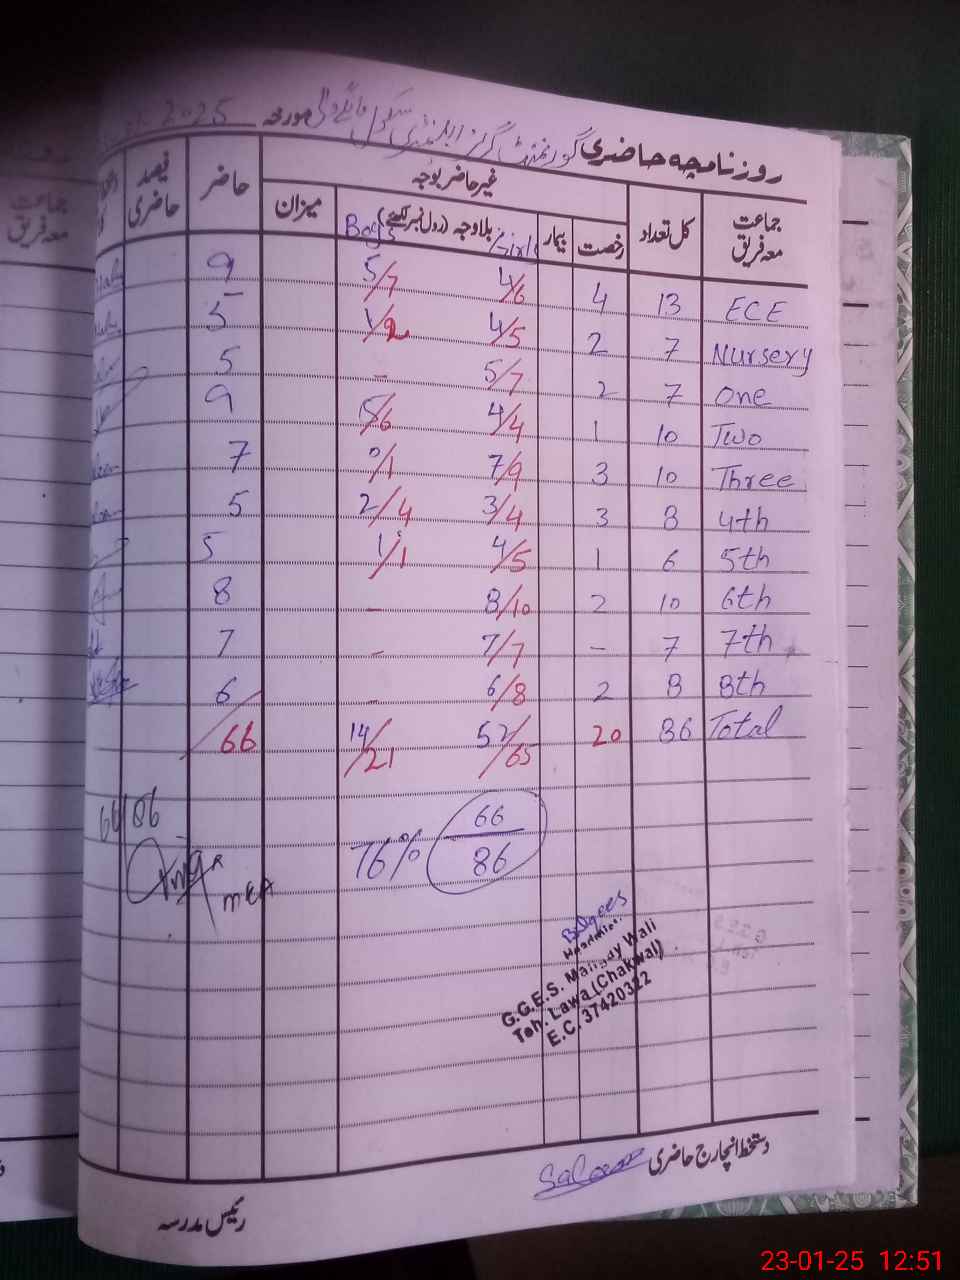 روزنامچہ حاضری گورنمنٹ گرلز ایلیمنٹری سکول مورخہ 2025
جماعت معہ فریق کل تعداد غیر حاضر بوجہ حاضر فیصد حاضری
رخصت بیمار بلاوجہ (رول نمبر لکھئے) میزان
Girls Boys
ECE 13 4 4/6 5/7 9
Nursery 7 2 4/5 1/2 5
One 7 2 5/7 - 5
Two 10 1 4/4 5/6 9
Three 10 3 7/9 0/1 7
4th 8 3 3/4 2/4 5
5th 6 1 4/5 1/1 5
6th 10 2 8/10 - 8
7th 7 - 7/7 - 7
8th 8 2 6/8 - 6
Total 86 20 52/65 14/21 66
66/86
76% 66/86
MEA
G.G.E.S. Wali
Teh. Lawa (Chakwal)
E.C. 37420322
دستخط انچارج حاضری
رئیس مدرسہ
23-01-25 12:51